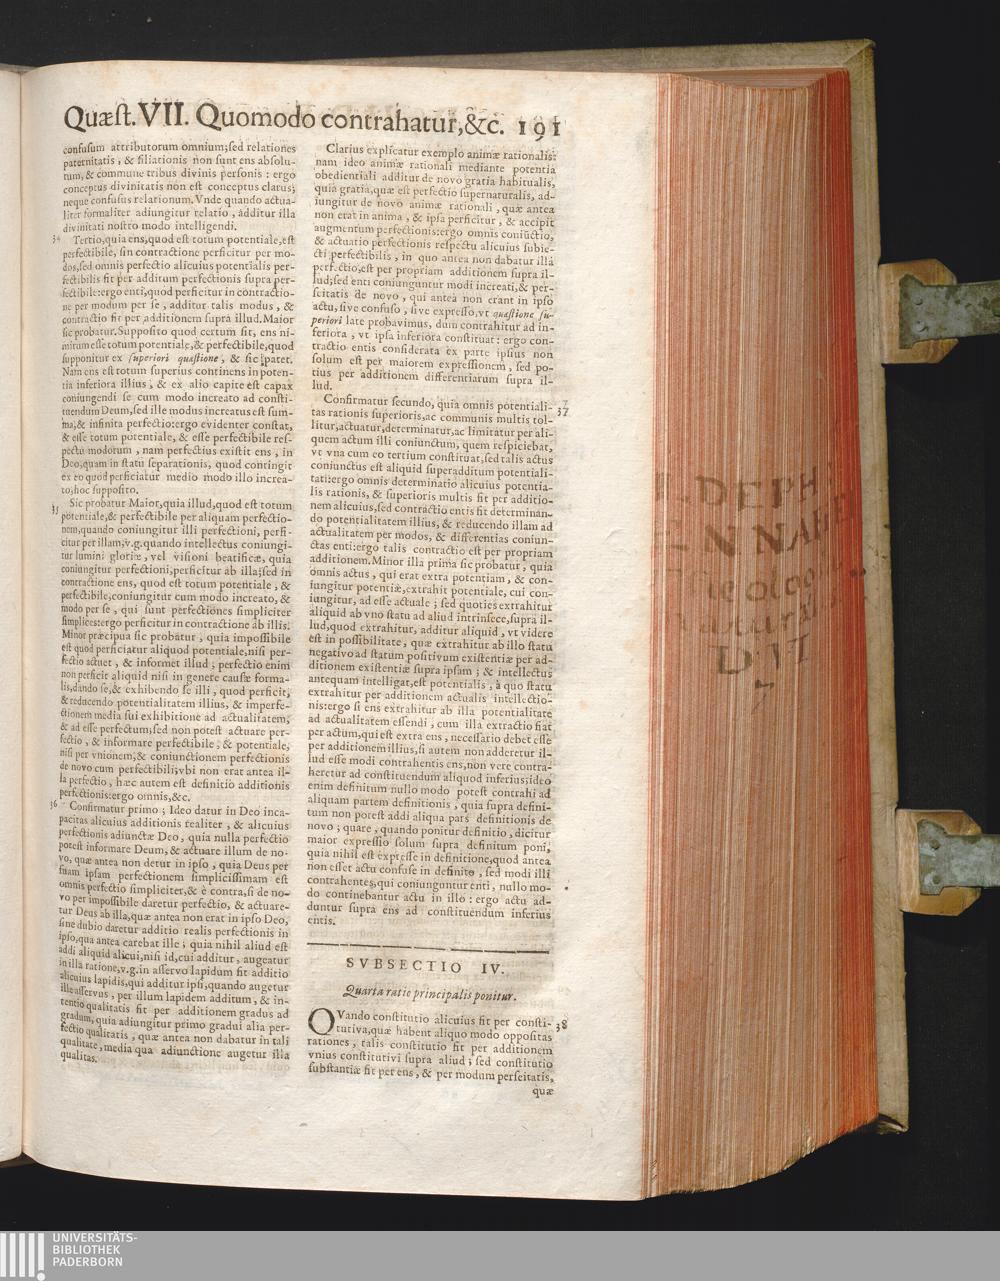 Quæſt. VII. Quomodo contrahatur,&c. 191
confuſum attributorum omnium;ſed relationes
paternitatis, & filiationis non ſunt ens abſolu-
tum, & commune tribus divinis perſonis : ergo
conceptus divinitatis non eſt conceptus clarus;
neque confuſus relationum. Vnde quando actua-
liter formaliter adiungitur relatio, additur illa
divinitati noſtro modo intelligendi.
34 Tertio,quia ens,quod eſt totum potentiale,eſt
perfectibile, ſin contractione perficitur per mo-
dos,ſed omnis perfectio alicuius potentialis per-
fectibilis fit per additum perfectionis ſupra per-
fectibile:ergo enti,quod perficitur in contractio-
ne per modum per ſe, additur talis modus, &
contractio fit per additionem ſupra illud. Maior
ſic probatur. Suppoſito quod certum ſit, ens ni-
mirum eſſe totum potentiale,& perfectibile,quod
ſupponitur ex ſuperiori quæſtione, & ſic patet.
Nam ens eſt totum ſuperius continens in poten-
tia inferiora illius, & ex alio capite eſt capax
coniungendi ſe cum modo increato ad conſti-
tuendum Deum,ſed ille modus increatus eſt ſum-
ma,& infinita perfectio:ergo evidenter conſtat,
& eſſe totum potentiale, & eſſe perfectibile reſ-
pectu modorum, nam perfectius exiſtit ens, in
Deo,quam in ſtatu ſeparationis, quod contingit
ex eo quod perficiatur medio modo illo increa-
to;hoc ſuppoſito.
35 Sic probatur Maior,quia illud,quod eſt totum
potentiale,& perfectibile per aliquam perfectio-
nem,quando coniungitur illi perfectioni, perfi-
citur per illam;v.g.quando intellectus coniungi-
tur lumini gloriæ, vel viſioni beatificæ, quia
coniungitur perfectioni,perficitur ab illa;ſed in
contractione ens, quod eſt totum potentiale, &
perfectibile,coniungitur cum modo increato, &
modo per ſe, qui ſunt perfectiones ſimpliciter
ſimplices:ergo perficitur in contractione ab illis.
Minor præcipua ſic probatur, quia impoſſibile
eſt quod perficiatur aliquod potentiale,niſi per-
fectio actuet, & informet illud; perfectio enim
non perficit aliquid niſi in genere cauſæ forma-
lis,dando ſe,& exhibendo ſe illi, quod perficit,
& reducendo potentialitatem illius, & imperfe-
ctionem media ſui exhibitione ad actualitatem,
& ad eſſe perfectum;ſed non poteſt actuare per-
fectio, & informare perfectibile, & potentiale,
niſi per vnionem,& coniunctionem perfectionis
de novo cum perfectibili;vbi non erat antea il-
la perfectio, hæc autem eſt definitio additionis
perfectionis:ergo omnis,&c.
36 Confirmatur primo; Ideo datur in Deo inca-
pacitas alicuius additionis realiter, & alicuius
perfectionis adiunctæ Deo, quia nulla perfectio
poteſt informare Deum, & actuare illum de no-
vo, quæ antea non detur in ipſo, quia Deus per
ſuam ipſam perfectionem ſimpliciſſimam eſt
omnis perfectio ſimpliciter,& è contra,ſi de no-
vo per impoſſibile daretur perfectio, & actuare-
tur Deus ab illa,quæ antea non erat in ipſo Deo,
ſine dubio daretur additio realis perfectionis in
ipſo,qua antea carebat ille; quia nihil aliud eſt
addi aliquid alicui,niſi id,cui additur, augeatur
in illa ratione,v.g.in aſſervo lapidum fit additio
alicuius lapidis,qui additur ipſi,quando augetur
ille aſſervus, per illum lapidem additum, & in-
tentio qualitatis fit per additionem gradus ad
gradum, quia adiungitur primo gradui alia per-
fectio qualitatis, quæ antea non dabatur in tali
qualitate, media qua adiunctione augetur illa
qualitas.
Clarius explicatur exemplo animæ rationalis:
nam ideo animæ rationali mediante potentia
obedientiali additur de novo gratia habitualis,
quia gratia,quæ eſt perfectio ſupernaturalis, ad-
iungitur de novo animæ rationali, quæ antea
non erat in anima, & ipſa perficitur, & accipit
augmentum perfectionis:ergo omnis coniūctio,
& actuatio perfectionis reſpectu alicuius ſubie-
cti perfectibilis, in quo antea non dabatur illa
perfectio,eſt per propriam additionem ſupra il-
lud;ſed enti coniunguntur modi increati,& per-
ſeitatis de novo, qui antea non erant in ipſo
actu, ſive confuſo, ſive expreſſo,vt quæſtione ſu-
periori late probavimus, dum contrahitur ad in-
feriora, vt ipſa inferiora conſtituat: ergo con-
tractio entis conſiderata ex parte ipſius non
ſolum eſt per maiorem expreſſionem, ſed po-
tius per additionem differentiarum ſupra il-
lud.
Confirmatur ſecundo, quia omnis potentiali- 37
tas rationis ſuperioris,ac communis multis tol-
litur,actuatur,determinatur,ac limitatur per ali-
quem actum illi coniunctum, quem reſpiciebat,
vt vna cum eo tertium conſtituat,ſed talis actus
coniunctus eſt aliquid ſuperadditum potentiali-
tati:ergo omnis determinatio alicuius potentia-
lis rationis, & ſuperioris multis fit per additio-
nem alicuius,ſed contractio entis fit determinan-
do potentialitatem illius, & reducendo illam ad
actualitatem per modos, & differentias coniun-
ctas enti:ergo talis contractio eſt per propriam
additionem. Minor illa prima ſic probatur, quia
omnis actus, qui erat extra potentiam, & con-
iungitur potentiæ,extrahit potentiale, cui con-
iungitur, ad eſſe actuale; ſed quoties extrahitur
aliquid ab vno ſtatu ad aliud intrinſece,ſupra il-
lud,quod extrahitur, additur aliquid, vt videre
eſt in poſſibilitate, quæ extrahitur ab illo ſtatu
negativo ad ſtatum poſitivum exiſtentiæ per ad-
ditionem exiſtentiæ ſupra ipſam; & intellectus
antequam intelligat,eſt potentialis, à quo ſtatu
extrahitur per additionem actualis intellectio-
nis:ergo ſi ens extrahitur ab illa potentialitate
ad actualitatem eſſendi, cum illa extractio fiat
per actum,qui eſt extra ens, neceſſario debet eſſe
per additionem illius,ſi autem non adderetur il-
lud eſſe modi contrahentis ens,non vere contra-
heretur ad conſtituendum aliquod inferius;ideo
enim definitum nullo modo poteſt contrahi ad
aliquam partem definitionis, quia ſupra defini-
tum non poteſt addi aliqua pars definitionis de
novo; quare, quando ponitur definitio, dicitur
maior expreſſio ſolum ſupra definitum poni,
quia nihil eſt expreſſe in definitione,quod antea
non eſſet actu confuſe in definito, ſed modi illi
contrahentes,qui coniunguntur enti, nullo mo-
do continebantur actu in illo : ergo actu ad-
duntur ſupra ens ad conſtituendum inferius
entis.
SVBSECTIO IV.
Quarta ratio principalis ponitur.
QVando conſtitutio alicuius fit per conſti- 38
tutiva,quæ habent aliquo modo oppoſitas
rationes, talis conſtitutio fit per additionem
vnius conſtitutivi ſupra aliud; ſed conſtitutio
ſubſtantiæ fit per ens, & per modum perſeitatis,
quæ
UNIVERSITÄTS-
BIBLIOTHEK
PADERBORN